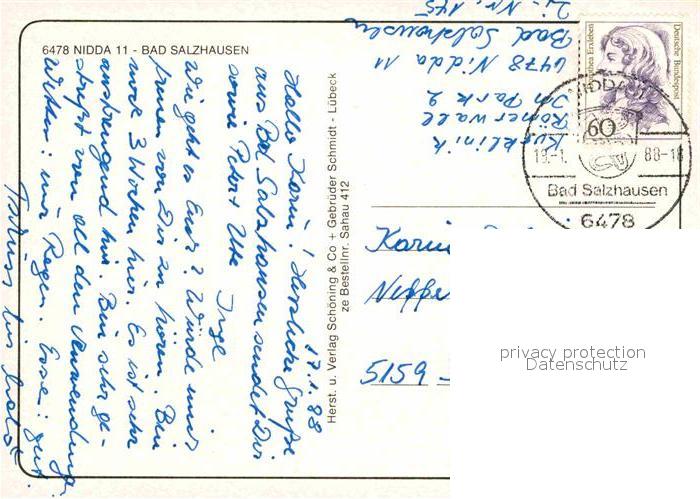 6478 NIDDA 11 - BAD SALZHAUSEN
17.1.88
Hallo Karin! Herzliche Grüße
aus Bad Salzhausen sendet Dir
sowie Peter + Ute Inge
Wie geht es Euch? Würde mich
freuen von Dir zu hören. Bin
noch 3 Wochen hier. Es ist sehr
anstrengend hier. Bin sehr ge-
streßt von all den Anwendung.
Wetter: nur Regen. Essen: gut.
Tschüss bis bald
Herst. u. Verlag Schöning & Co + Gebrüder Schmidt - Lübeck
ze Bestellnr. Sahau 412
Kurklinik
Römerwall
Im Park 2
6478 Nidda 11
Bad Salzhausen
Zi-Nr. 145
Deutsche Bundespost
Dorothea Erxleben
60
NIDDA 1
88-18
Bad Salzhausen
6478
Karin
5159 -
privacy protection
Datenschutz